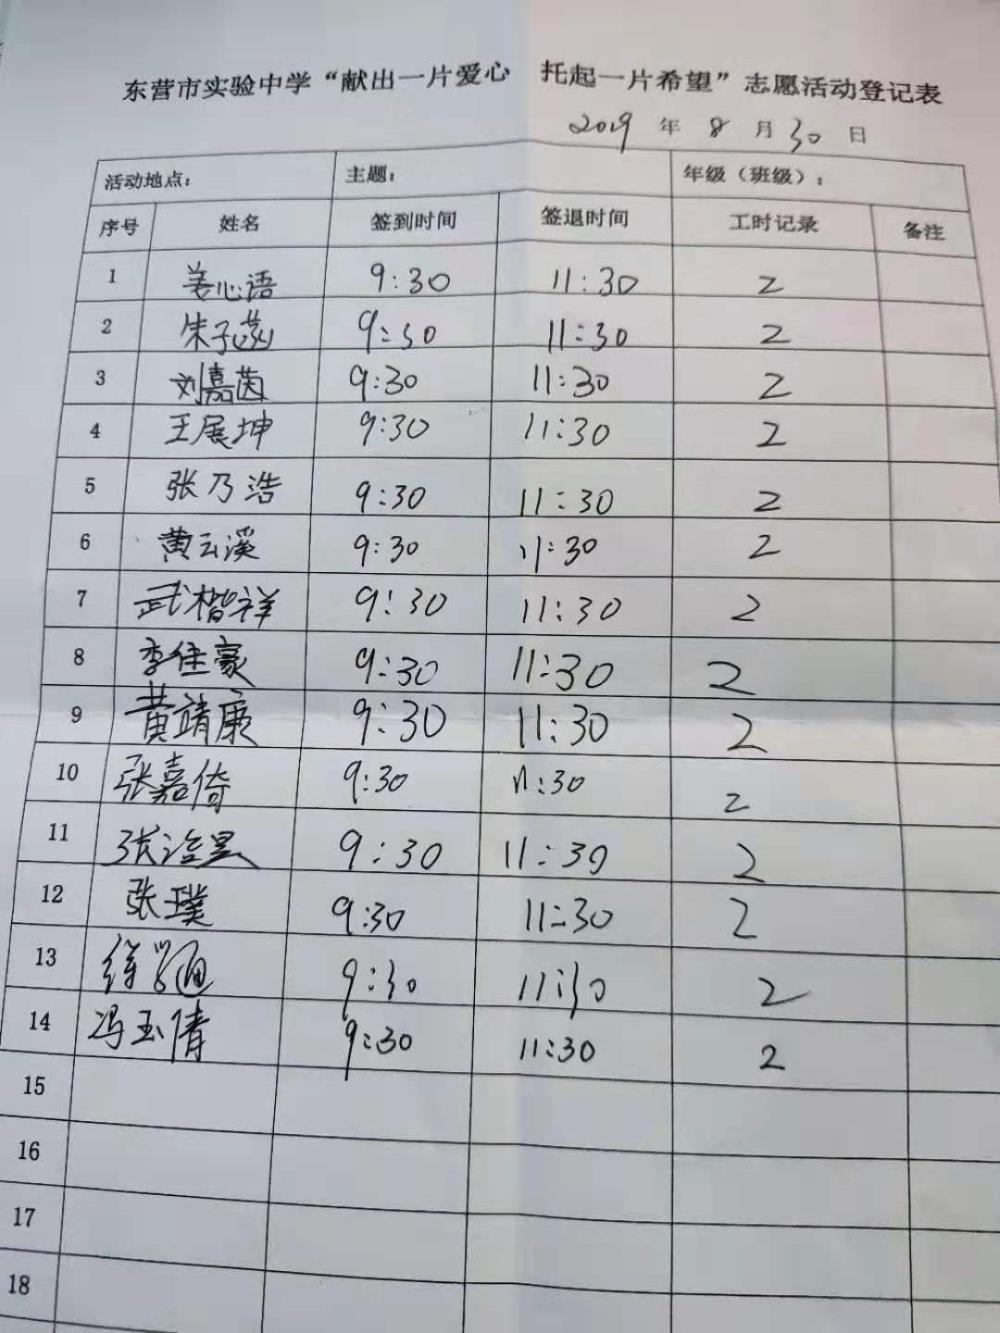 东营市实验中学“献出一片爱心 托起一片希望”志愿活动登记表
2019 年 8 月 30 日
活动地点： 主题： 年级（班级）：
序号 姓名 签到时间 签退时间 工时记录 备注
1 姜心语 9:30 11:30 2
2 朱子菡 9:30 11:30 2
3 刘嘉茵 9:30 11:30 2
4 王展坤 9:30 11:30 2
5 张乃浩 9:30 11:30 2
6 黄云溪 9:30 11:30 2
7 武楷祥 9:30 11:30 2
8 李佳豪 9:30 11:30 2
9 黄靖康 9:30 11:30 2
10 张嘉倚 9:30 11:30 2
11 9:30 11:30 2
12 张璞 9:30 11:30 2
13 9:30 11:30 2
14 冯玉倩 9:30 11:30 2
15
16
17
18